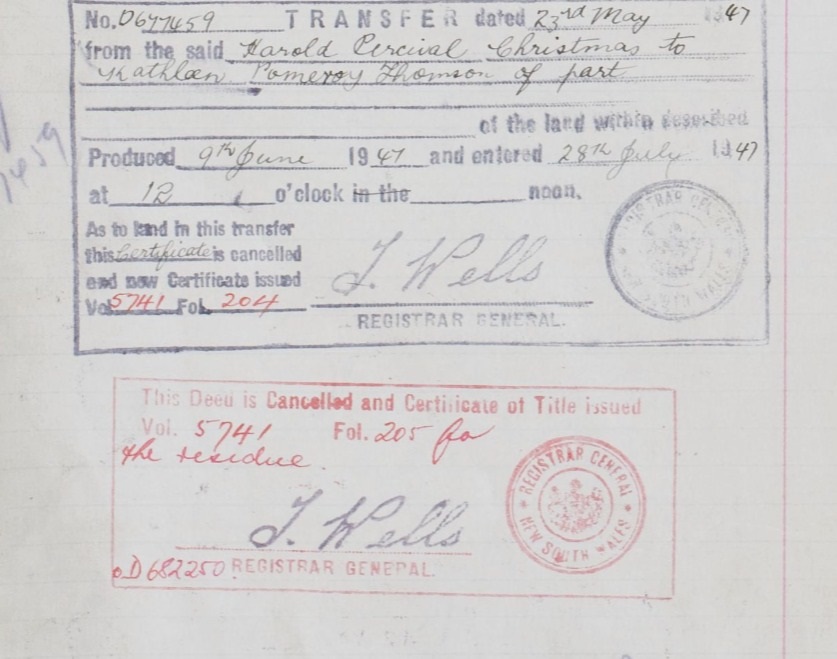 No. D677459 TRANSFER dated 23rd May 1947
from the said Harold Percival Christmas to
Kathleen Pomeroy Thomson of part
of the land within described
Produced 9th June 1947 and entered 28th July 1947
at 12 o'clock in the noon.
As to land in this transfer
this Certificate is cancelled
and new Certificate issued
Vol. 5741 Fol. 204
J. Wells
REGISTRAR GENERAL.
REGISTRAR GENERAL
NEW SOUTH WALES
7459
This Deed is Cancelled and Certificate of Title issued
Vol. 5741 Fol. 205 for
the residue.
J. Wells
D682250 REGISTRAR GENERAL.
REGISTRAR GENERAL
NEW SOUTH WALES